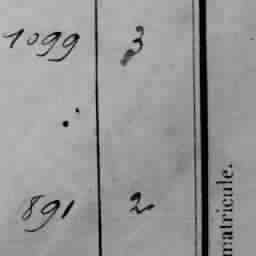 1099 3
891 2
matricule.